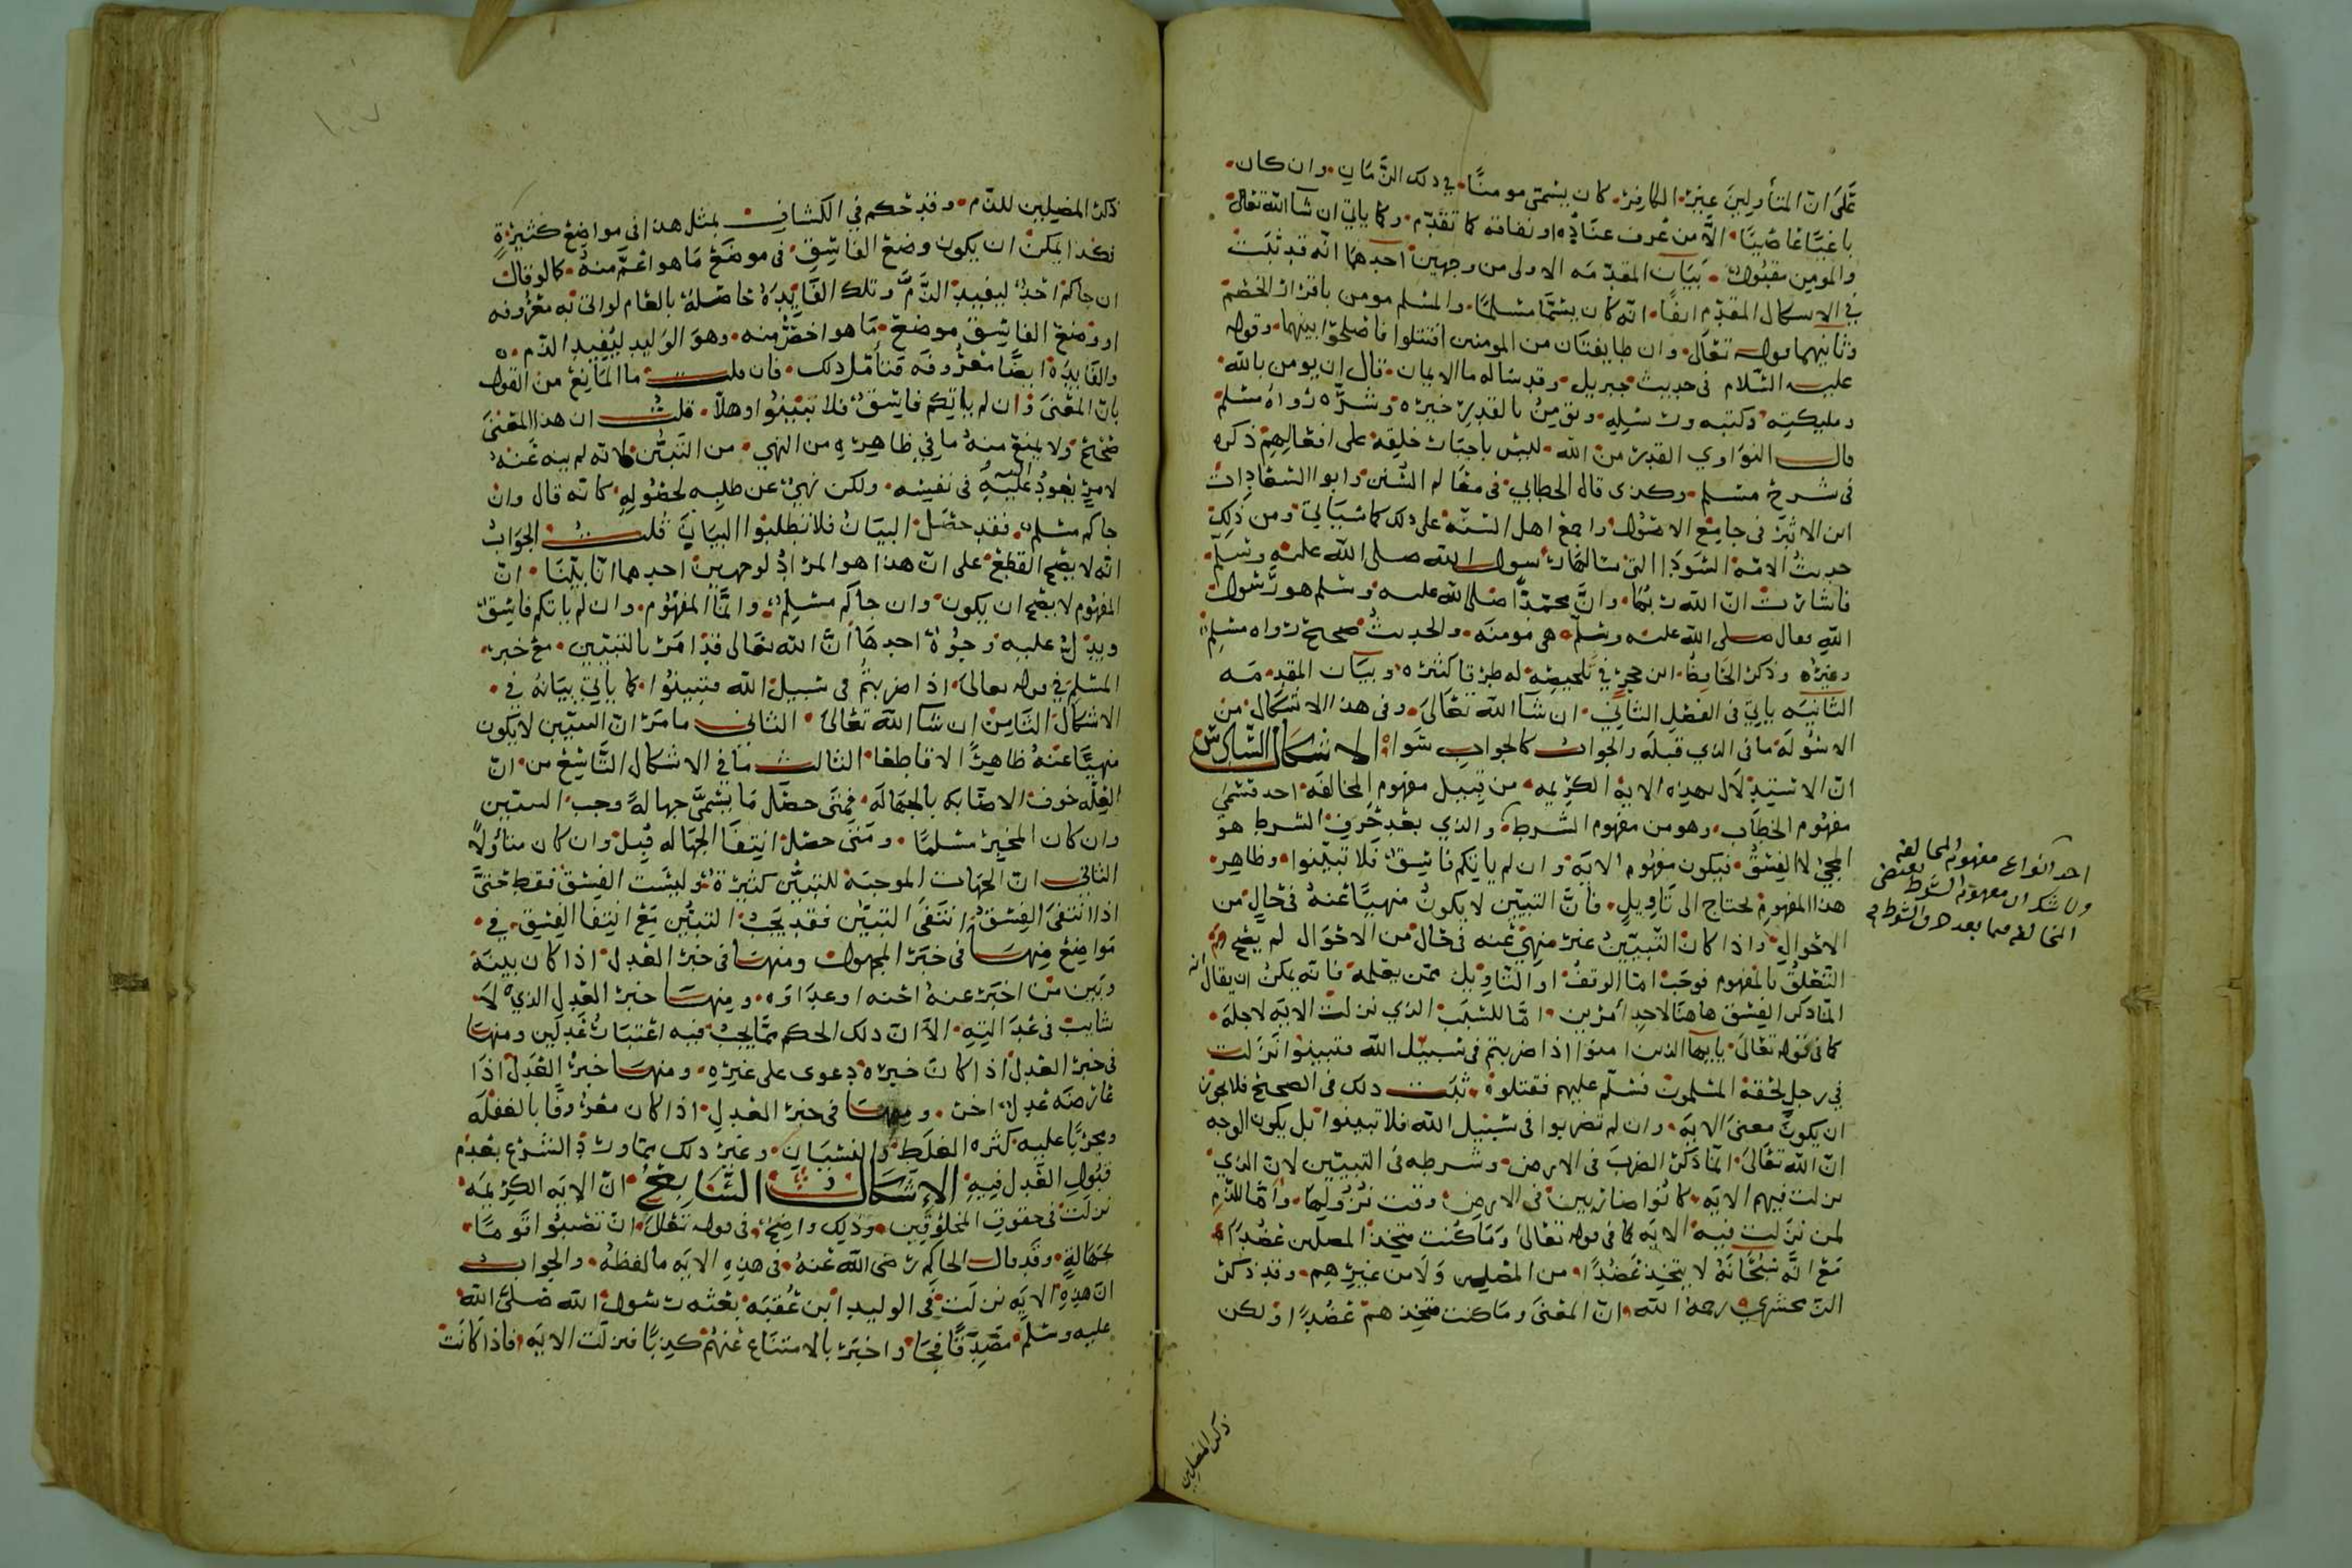 على ان المتأولين غير الكافر كان يسمى مومنًا في ذلك الزمان وان كان
باغيًا عاصيًا الا من عرف عناده او نفاقه كما تقدم وكما ياتي ان شا الله تعالى
والمومن مقبول بيان المقدمه الاولى من وجهين احدهما انه قد ثبت
في الاسكال المقدم انفًا انه كان يسمّا مسلمًا والمسلم مومن باقرار الخصم
وثانيهما قوله تعالى وان طايفتان من المومنين اقتتلوا فاصلحوا بينهما وقوله
عليه السلام في حديث جبريل وقد ساله ما الايمان قال ان يومن بالله
ومليكته وكتبه ورسله ونومن بالقدر خيره وشره رواه مسلم
قال النواوي القدر من الله ليس باجبار خلقه على افعالهم ذكره
في شرح مسلم وكذى قال الخطابي في معالم السنن وابو السعادات
ابن الاثير في جامع الاصول واجمع اهل السنه على ذلك كما سياتي ومن ذلك
حديث الامه السودا التي سالها رسول الله صلى الله عليه وسلم
فاشارت ان الله ربها وان محمدًا صلى الله عليه وسلم هو رسول
الله فقال صلى الله عليه وسلم هي مومنه والحديث صحيح رواه مسلم
وغيره وذكر الحافظ ابن حجر في تلخيصه له طرقا كثيره وبيان المقدمه
الثانيه ياتي في الفصل الثاني ان شآ الله تعالى وفي هذا الاشكال من
الاسوله ما في الذي قبله والجواب كالجواب سوا الاشكال السادس
ان الاستدلال بهذه الايه الكريمه من قبيل مفهوم المخالفه احد قسمي
مفهوم الخطاب وهو من مفهوم الشرط والذي بعد حرف الشرط هو
المجي لا الفسق فيكون مفهوم الايه وان لم ياتكم فاسق فلا تبينوا وظاهر
هذا المفهوم يحتاج الى تاويل فان التبيين لا يكون منهيًا عنه في حال من
الاحوال واذا كان التبيين غير منهي عنه في حال من الاحوال لم يصح
التعلق بالمفهوم فوجب اما الوقف او التاويل ممن يعلمه فانه يمكن ان يقال انه
انما ذكر الفسق هاهنا لاحد امرين اما للسبب الذي نزلت الايه لاجله
كما في قوله تعالى يايها الذين امنوا اذا ضربتم في سبيل الله فتبينوا نزلت
في رجل لحقه المسلمون فسلم عليهم فقتلوه ثبت ذلك في الصحيح فلا يجوز
ان يكون معنى الايه وان لم تضربوا في سبيل الله فلا تبينوا بل يكون الوجه
ان الله تعالى انما ذكر الضرب في الارض وشرطه في التبيين لان الذي
نزلت فيهم الايه كانوا ضاربين في الارض وقت نزولها واما للذم
لمن نزلت فيه الايه كما في قوله تعالى وما كنت متخذ المضلين عضدا
مع انه سبحانه لا يتخذ عضدًا من المضلين ولا من غيرهم وقد ذكر
الزمخشري رحمه الله ان المعنى وما كنت متخذهم عضدًا ولكن
احد انواع مفهوم المخالفه
ولا شك ان مفهوم الشرط يقتضي
المخالفه فيما بعد حرف الشرط
ذكر المضلين
ذكر المضلين للذم وقد حكم في الكشاف بمثل هذا في مواضع كثيرة
فكذا يمكن ان يكون وضع الفاسق في موضع ما هو اعم منه كما لو قال
ان جاكم احد ليفيد الذم وتلك الفايده حاصله بالعام لو اتى به معروفه
او وضع الفاسق موضع ما هو اخص منه وهو الوليد ليفيد الذم
والفايده ايضًا معروفه فتأمل ذلك فان قلت ما المانع من القول
بان المعنى وان لم ياتكم فاسق فلا تبينوا وهلا قلت ان هذا المعنى
صحيح ولا يمنع منه ما في ظاهره من النهي من التبين لانه لم ينه عنه
لامر يعود اليه في نفسه ولكن نهي عن طلبه لحصوله كانه قال وان
جاكم مسلم فقد حصل البيان فلا تطلبوا البيان قلت الجواب
انه لا يصح القطع على ان هذا هو المراد لوجهين احدهما انا بينا ان
المفهوم لا يصح ان يكون وان جاكم مسلم وانما المفهوم وان لم ياتكم فاسق
ويدل عليه وجوه احدها ان الله تعالى قد امر بالتبيين مع خبر
المسلم في قوله تعالى اذا ضربتم في سبيل الله فتبينوا كما ياتي بيانه في
الاشكال الثامن ان شآ الله تعالى الثاني ما مر ان التبيين لا يكون
منهيًا عنه ظاهرًا لا قاطعا الثالث ما في الاشكال التاسع من ان
العله خوف الاصابه بالجهاله فمتى حصل ما يسمى جهالة وجب التبيين
وان كان المخبر مسلمًا ومتى حصل انتفا الجهاله قبل وان كان متاولًا
الثاني ان الجهات الموجبه للتبين كثيرة وليست الفسق فقط حتى
اذا انتفى الفسق انتفى التبين فقد يجب التبين مع انتفا الفسق في
مواضع منها في خبر المجهول ومنها في خبر العدل اذا كان بينه
وبين من اخبر عنه احنه او عداوه ومنها خبر العدل الذي لا
شابت في عدالته الا ان ذلك الحكم مما يجب فيه اعتبار عدلين ومنها
في خبر العدل اذا كان خبره دعوى على غيره ومنها خبر العدل اذا
عارضه عدل اخر ومنها في خبر العدل اذا كان معروفًا بالغفله
ومجربًا عليه كثره الغلط والنسيان وغير ذلك مما ورد الشرع بعدم
قبول العدل فيه الاشكال السابع ان الايه الكريمه
نزلت في حقوق المخلوقين وذلك واضح في قوله تعالى ان تصيبوا قومًا
بجهالة وقد قال الحاكم رضى الله عنه في هذه الايه ما لفظه والجواب
ان هذه الايه نزلت في الوليد ابن عقبه بعثه رسول الله صلى الله
عليه وسلم مصدقًا فجا واخبر بالامتناع عنهم كذبًا فنزلت الايه فاذا كانت